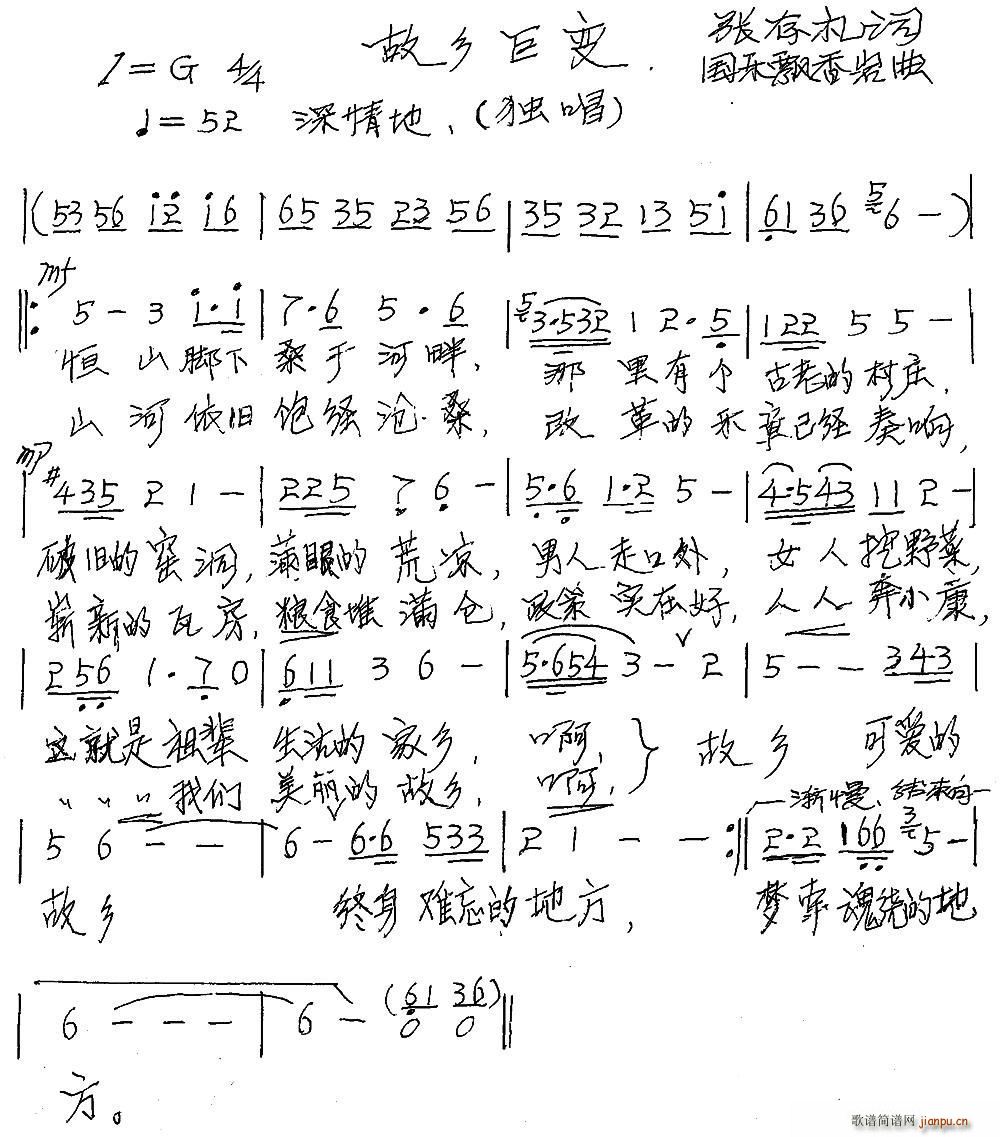 故乡巨变
张存礼词
国乐飘香岩曲
1=G 4/4
♩=52 深情地、(独唱)
|(53 56 i2 i6 | 65 35 23 56 | 35 32 13 5i | 61 36 5 6 - )|
mf
‖: 5 - 3 i·i | 7·6 5·6 | 5 3·532 1 2·5 | 122 5 5 - |
恒山脚下桑干河畔, 那里有个古老的村庄,
山河依旧饱经沧桑, 改革的乐章已经奏响,
mp
| #435 2 1 - | 225 7 6 - | 5·6 1·2 5 - | 4·543 11 2 - |
破旧的窑洞,满眼的荒凉,男人走口外,女人挖野菜,
崭新的瓦房,粮食堆满仓,政策实在好,人人奔小康,
| 256 1·7 0 | 611 3 6 - | 5·654 3 - 2 | 5 - - 343 |
这就是祖辈生活的家乡, 啊, } 故乡 可爱的
〃 〃 〃 我们美丽的故乡, 啊,
渐慢、结束句
| 5 6 - - | 6 - 6·6 533 | 2 1 - - :‖ 2·2 166 3 5 - |
故乡 终身难忘的地方, 梦牵魂绕的地
| 6 - - - | 6 - (61 36) ‖
0 0
方。
歌谱简谱网 jianpu.cn